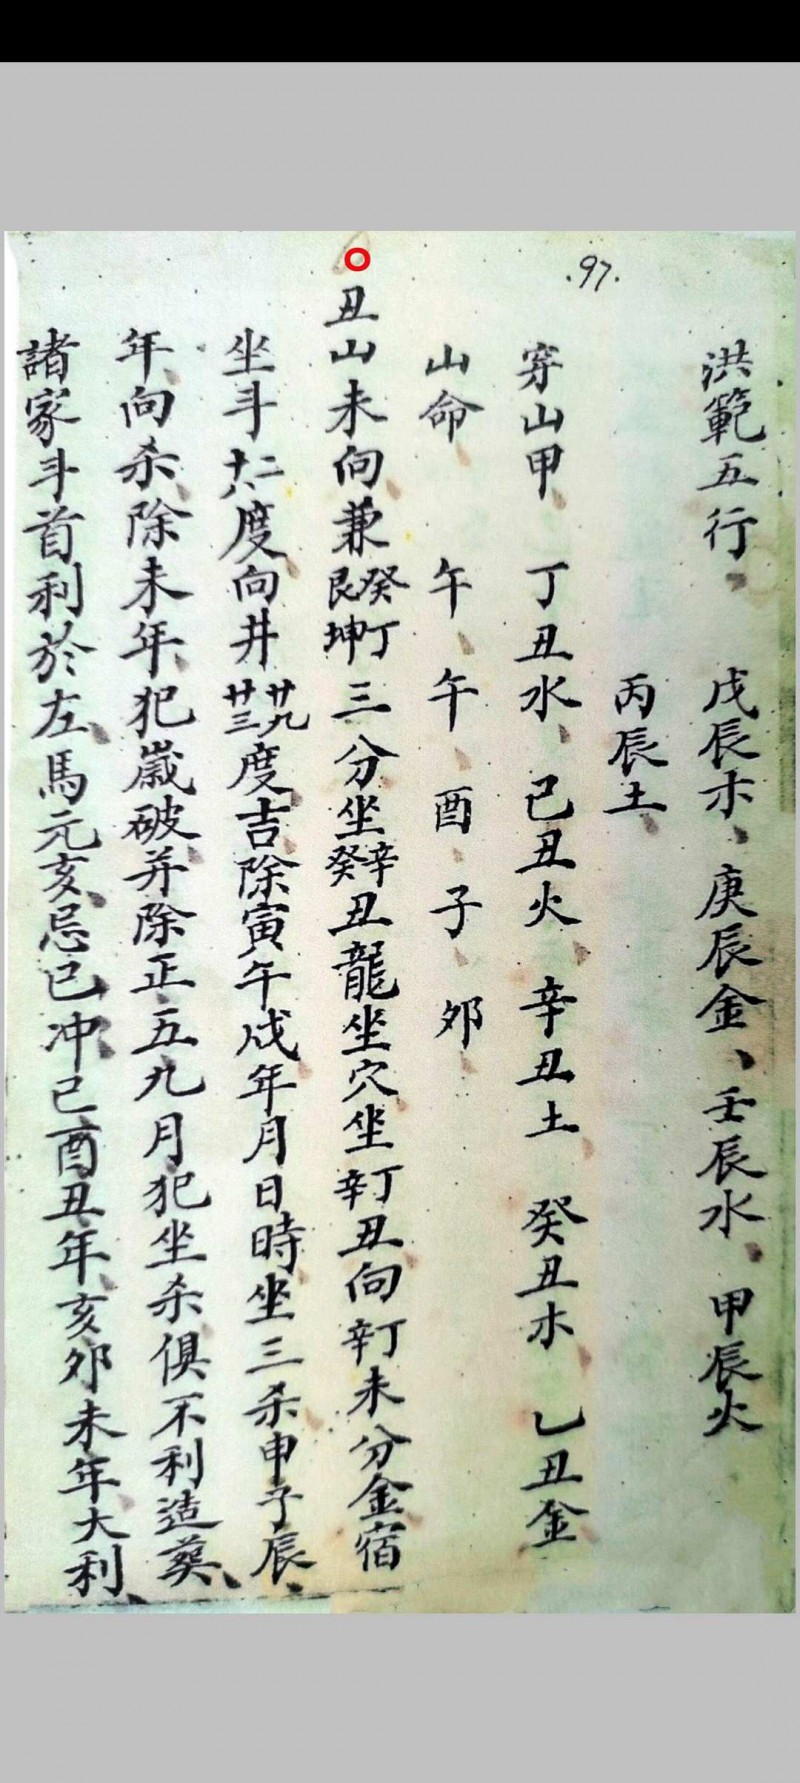 .97.
洪範五行、 戊辰木、庚辰金、壬辰水、甲辰火
丙辰土、
穿山甲、 丁丑水、己丑火、辛丑土 癸丑木、乙丑金
山命、 午、午、酉、子、夘、
丑山未向兼癸丁艮坤三分坐辛癸丑龍坐穴坐丁辛丑向丁辛未分金宿
坐斗二十八度向井廿九廿三度吉除寅午戌年月日時坐三杀申子辰、
年向杀、除未年、犯歲破、并除正、五九月犯坐杀俱不利造葵、
諸家斗首利於左、馬元亥、忌巳冲、巳酉丑年、亥夘未年、大利、